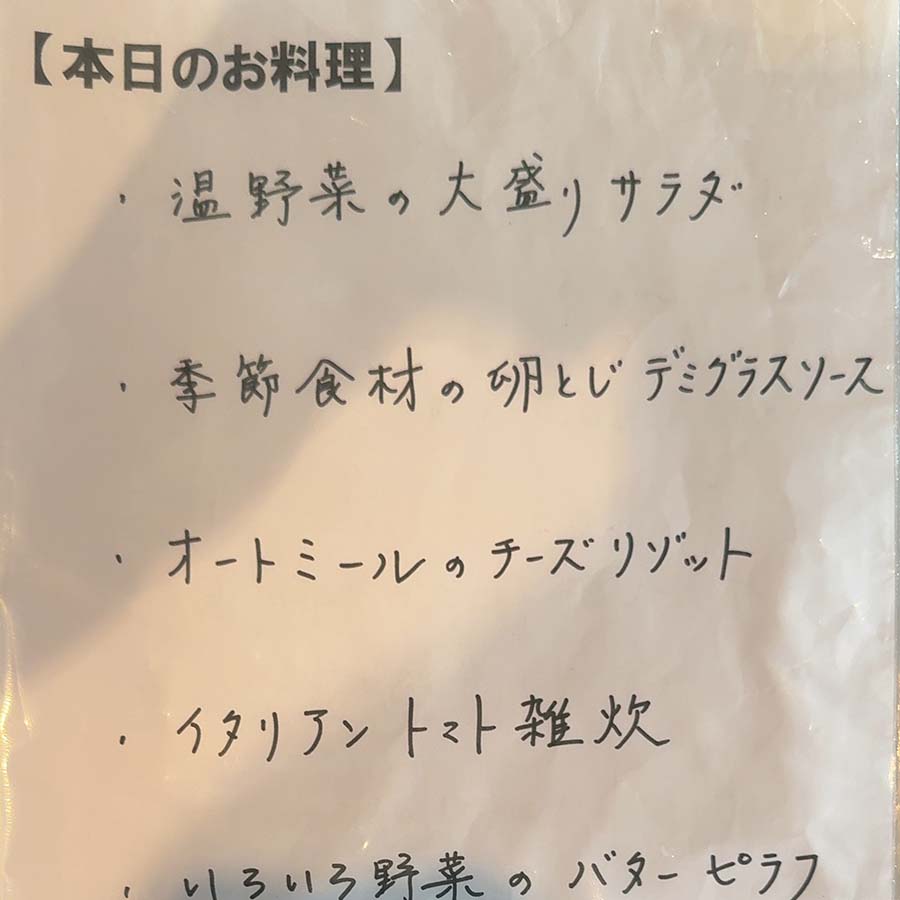 【本日のお料理】
・温野菜の大盛りサラダ
・季節食材の卵とじデミグラスソース
・オートミールのチーズリゾット
・イタリアントマト雑炊
・いろいろ野菜のバターピラフ